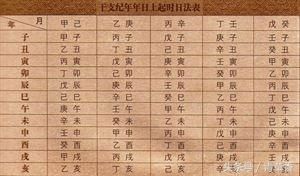 干支纪年年日上起时日法表
年 月 甲己 乙庚 丙辛 丁壬 戊癸
子 甲子 丙子 戊子 庚子 壬子
丑 乙丑 丁丑 己丑 辛丑 癸丑
寅 丙寅 戊寅 庚寅 壬寅 甲寅
卯 丁卯 己卯 辛卯 癸卯 乙卯
辰 戊辰 庚辰 壬辰 甲辰 丙辰
巳 己巳 辛巳 癸巳 乙巳 丁巳
午 庚午 壬午 甲午 丙午 戊午
未 辛未 癸未 乙未 丁未 己未
申 壬申 甲申 丙申 戊申 庚申
酉 癸酉 乙酉 丁酉 己酉 辛酉
戌 甲戌 丙戌 戊戌 庚戌 壬戌
亥 乙亥 丁亥 己亥 辛亥 癸亥
头条号 /